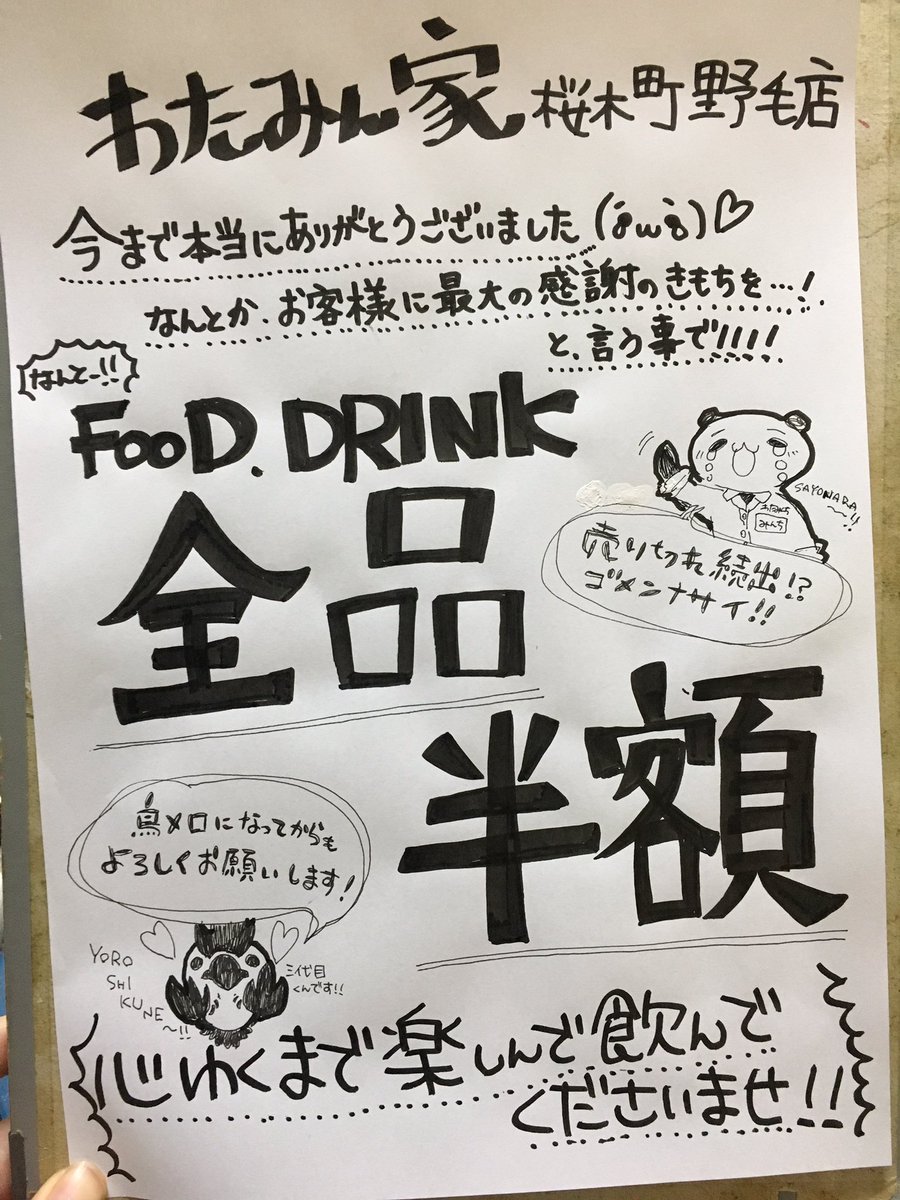 わたみん家 桜木町野毛店
今まで本当にありがとうございました(´;ω;`)♡
なんとか、お客様に最大の感謝のきもちを…!
と、言う事で!!!!
なんとー!!
FOOD. DRINK
全品
SAYONARA
〜!!
わたみち
みんち
売り切れ続出!?
ゴメンナサイ!!
半額
鳥メロになってからも
よろしくお願いします!
YORO
SHI
KUNE
〜!!
三代目
くんです!!
心ゆくまで楽しんで飲んで
くださいませ!!